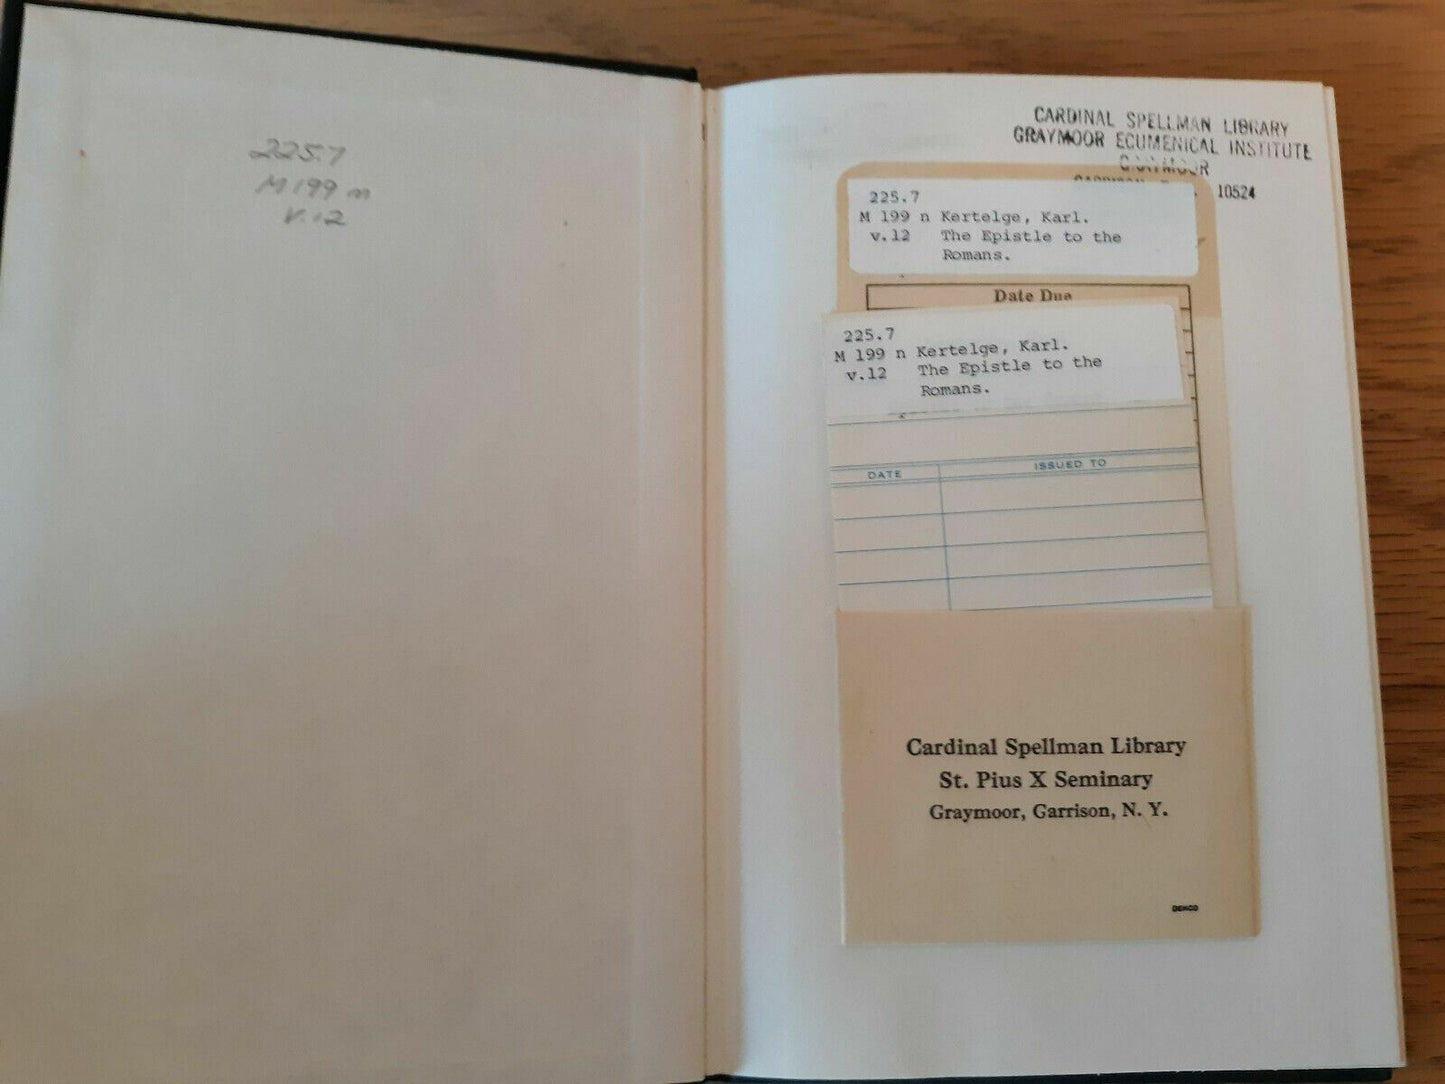 225.7
M 199 n
v.12
CARDINAL SPELLMAN LIBRARY
GRAYMOOR ECUMENICAL INSTITUTE
GRAYMOOR
10524
225.7
M 199 n Kertelge, Karl.
v.12 The Epistle to the
Romans.
Date Due
225.7
M 199 n Kertelge, Karl.
v.12 The Epistle to the
Romans.
DATE ISSUED TO
Cardinal Spellman Library
St. Pius X Seminary
Graymoor, Garrison, N. Y.
DEMCO